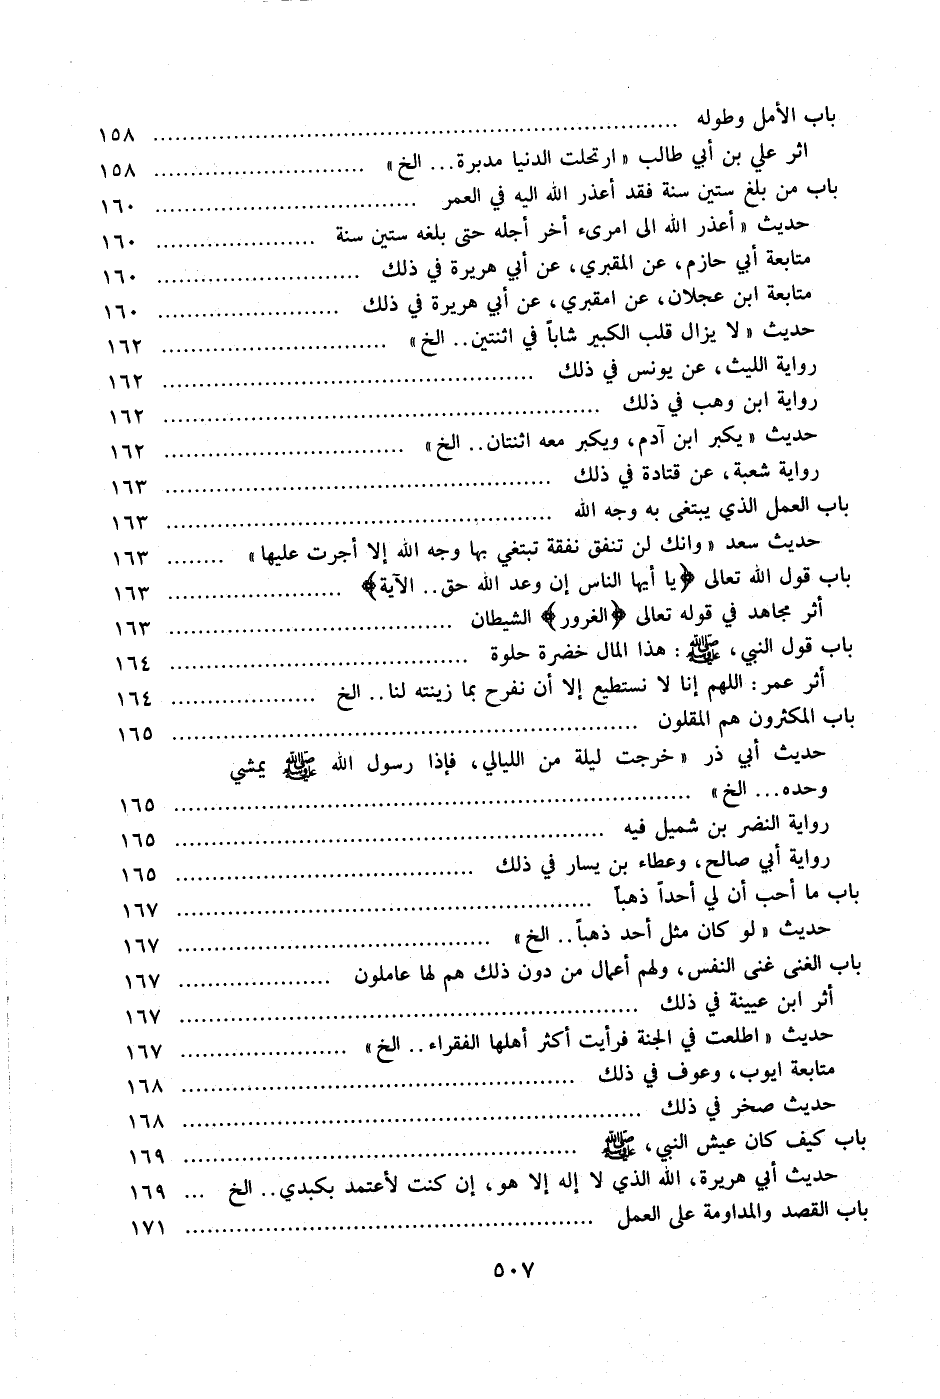 باب الأمل وطوله ................ ١٥٨
اثر علي بن أبي طالب « ارتحلت الدنيا مدبرة... الخ » ................ ١٥٨
باب من بلغ ستين سنة فقد أعذر الله اليه في العمر ................ ١٦٠
حديث « أعذر الله الى امرىء أخر أجله حتى بلغه ستين سنة ................ ١٦٠
متابعة أبي حازم، عن المقبري، عن أبي هريرة في ذلك ................ ١٦٠
متابعة ابن عجلان، عن امقبري، عن أبي هريرة في ذلك ................ ١٦٠
حديث « لا يزال قلب الكبير شاباً في اثنتين.. الخ » ................ ١٦٢
رواية الليث، عن يونس في ذلك ................ ١٦٢
رواية ابن وهب في ذلك ................ ١٦٢
حديث « يكبر ابن آدم، ويكبر معه اثنتان.. الخ » ................ ١٦٢
رواية شعبة، عن قتادة في ذلك ................ ١٦٣
باب العمل الذي يبتغى به وجه الله ................ ١٦٣
حديث سعد « وانك لن تنفق نفقة تبتغي بها وجه الله إلا أجرت عليها » ........ ١٦٣
باب قول الله تعالى ﴿يا أيها الناس إن وعد الله حق.. الآية﴾ ................ ١٦٣
أثر مجاهد في قوله تعالى ﴿الغرور﴾ الشيطان ................ ١٦٣
باب قول النبي، ﷺ : هذا المال خضرة حلوة ................ ١٦٤
أثر عمر : اللهم إنا لا نستطيع إلا أن نفرح بما زينته لنا.. الخ ................ ١٦٤
باب المكثرون هم المقلون ................ ١٦٥
حديث أبي ذر « خرجت ليلة من الليالي، فإذا رسول الله ﷺ يمشي
وحده... الخ » ................ ١٦٥
رواية النضر بن شميل فيه ................ ١٦٥
رواية أبي صالح، وعطاء بن يسار في ذلك ................ ١٦٥
باب ما أحب أن لي أحداً ذهباً ................ ١٦٧
حديث « لو كان مثل أحد ذهباً.. الخ » ................ ١٦٧
باب الغنى غنى النفس، ولهم أعمال من دون ذلك هم لها عاملون ................ ١٦٧
أثر ابن عيينة في ذلك ................ ١٦٧
حديث « اطلعت في الجنة فرأيت أكثر أهلها الفقراء.. الخ » ................ ١٦٧
متابعة ايوب، وعوف في ذلك ................ ١٦٨
حديث صخر في ذلك ................ ١٦٨
باب كيف كان عيش النبي، ﷺ ................ ١٦٩
حديث أبي هريرة، الله الذي لا إله إلا هو، إن كنت لأعتمد بكبدي.. الخ ... ١٦٩
باب القصد والمداومة على العمل ................ ١٧١
٥٠٧